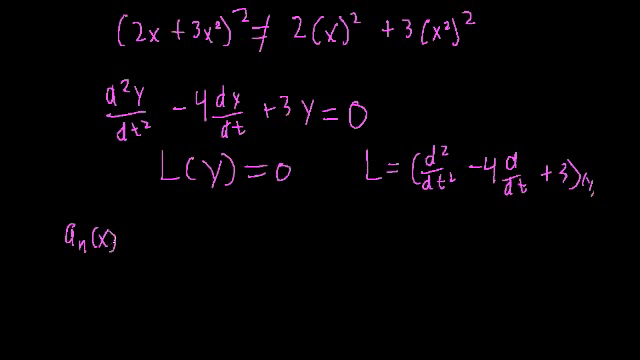 (2x + 3x²)² ≠ 2(x)² + 3(x²)²
d²y/dt² - 4 dy/dt + 3y = 0
L(y) = 0 L = (d²/dt² - 4 d/dt + 3)
aₙ(x)